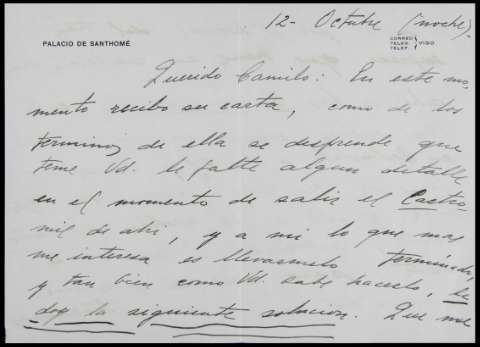 12- Octubre (noche).
PALACIO DE SANTHOMÉ
CORREO
TELEX.
TELEF. VIGO
Querido Camilo: En este mo-
mento recibo su carta, como de los
terminos de ella se desprende que
teme Vd. le falte algun detalle
en el momento de salir el Castro-
mil de ahi, y a mi lo que mas
me interesa es llevarmelo terminado
y tan bien como Vd. sabe hacerlo, le
doy la siguiente solucion. Que me